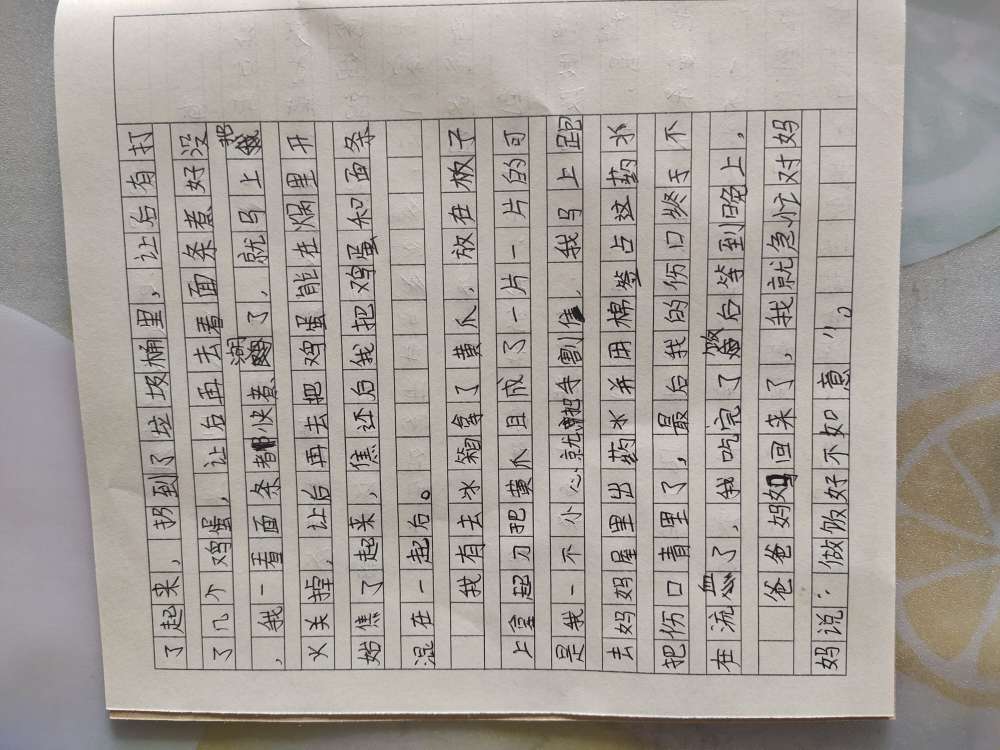 了起来，扔到了垃圾桶里，让后有打
了几个鸡蛋，让后再去看面条煮好没
，我一看面条都快煮潮了，就马上把
火关掉，让后再去把鸡蛋能在焗里开
始焦了起来，焦还后我把鸡蛋和面条
混在一起后。
我有去水箱拿了黄爪，放在板子
上拿起刀把黄爪且成了一片一片的可
是我一不小心就把手割焦，我马上跑
去妈妈屋里出药水并用棉签占这药水
把伤口青里了，最后我的伤口终于不
在流血了，我吃完了饭后等到晚上，
爸爸妈妈回来了，我就急忙对妈
妈说：做饭好不如意"。